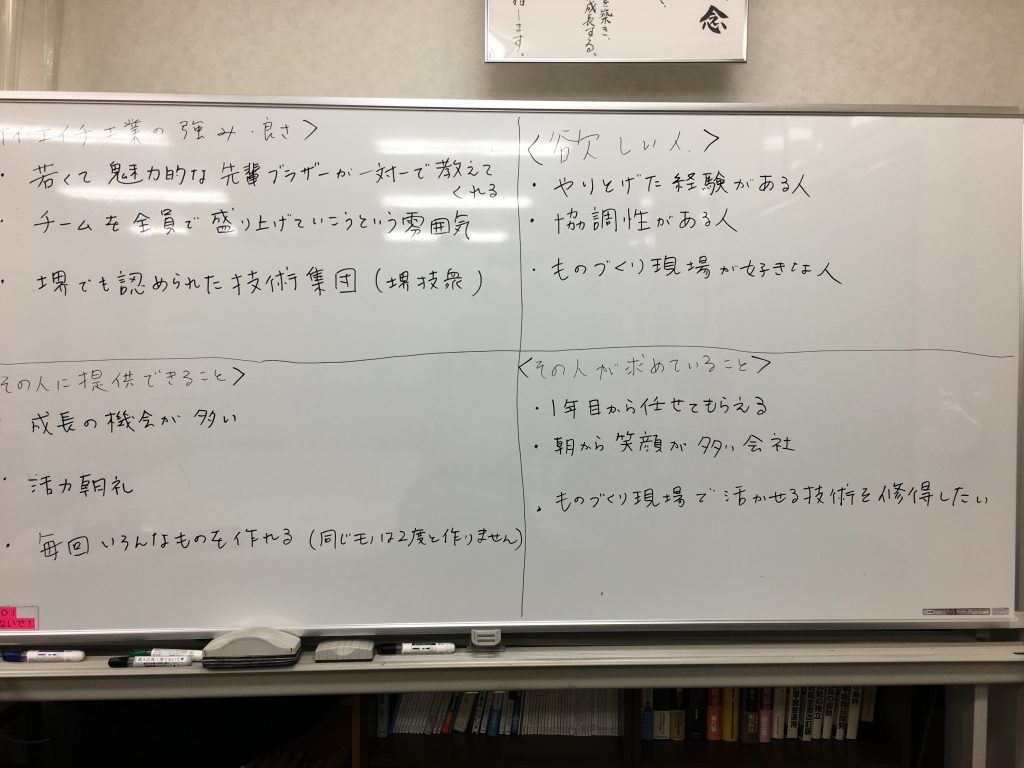 念
を築き、
成長する。
指します。
ケイ・エイチ工業の強み・良さ>
・若くて魅力的な先輩ブラザーが一対一で教えて
くれる
・チームを全員で盛り上げていこうという雰囲気
・堺でも認められた技術集団(堺技衆)
<欲しい人>
・やりとげた経験がある人
・協調性がある人
・ものづくり現場が好きな人
その人に提供できること>
・成長の機会が多い
・活力朝礼
・毎回いろんなものを作れる(同じモノは2度と作りません)
<その人が求めていること>
・1年目から任せてもらえる
・朝から笑顔が多い会社
・ものづくり現場で活かせる技術を修得したい
O!
ないで!